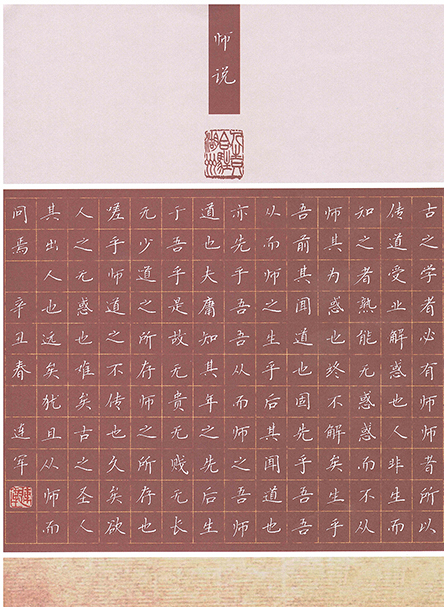 师说
古之学者必有师师者所以
传道受业解惑也人非生而
知之者孰能无惑惑而不从
师其为惑也终不解矣生乎
吾前其闻道也固先乎吾吾
从而师之生乎后其闻道也
亦先乎吾吾从而师之吾师
道也夫庸知其年之先后生
于吾乎是故无贵无贱无长
无少道之所存师之所存也
嗟乎师道之不传也久矣欲
人之无惑也难矣古之圣人
其出人也远矣犹且从师而
问焉 辛丑春 连军